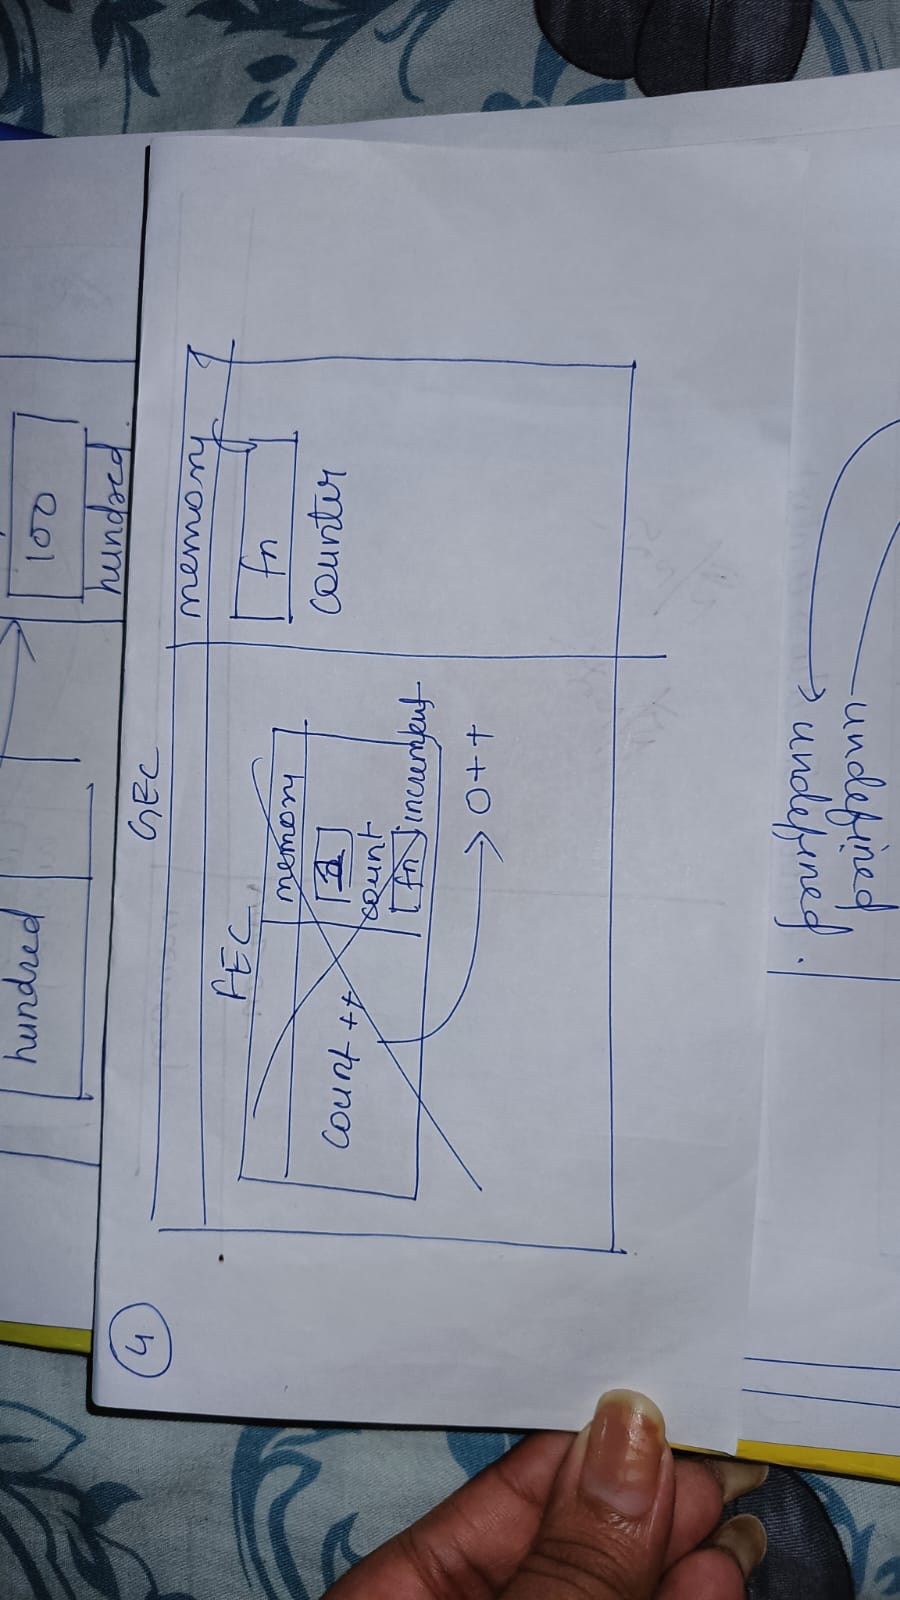 100
hundred
hundred
4
GEC
memory
fn
counter
FEC
memory
1
count
fn
increment
count ++
0++
undefined
undefined.